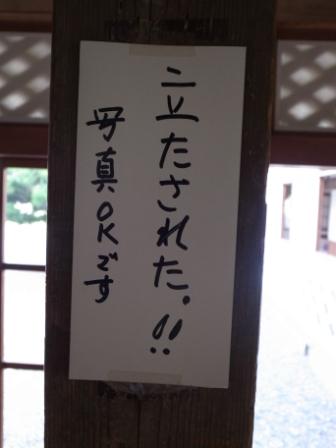 立たされた。!!
写真OKです